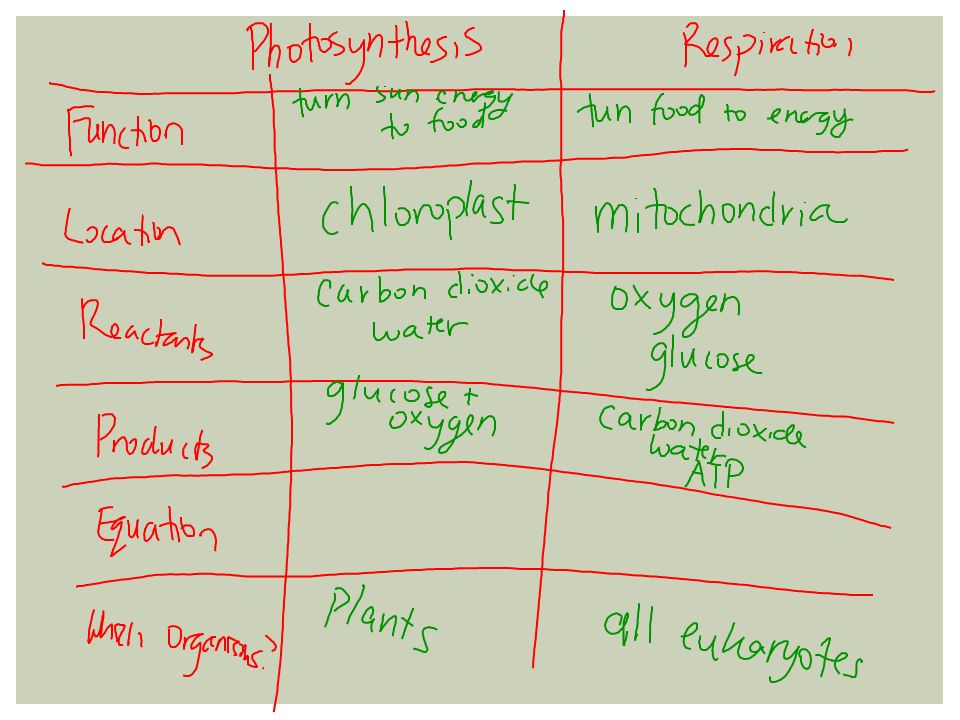 Photosynthesis Respiration
Function turn sun energy tun food to energy
to food
Location chloroplast mitochondria
Reactants carbon dioxide oxygen
water glucose
Products glucose + carbon dioxide
oxygen water
ATP
Equation
Which Organisms? Plants all eukaryotes